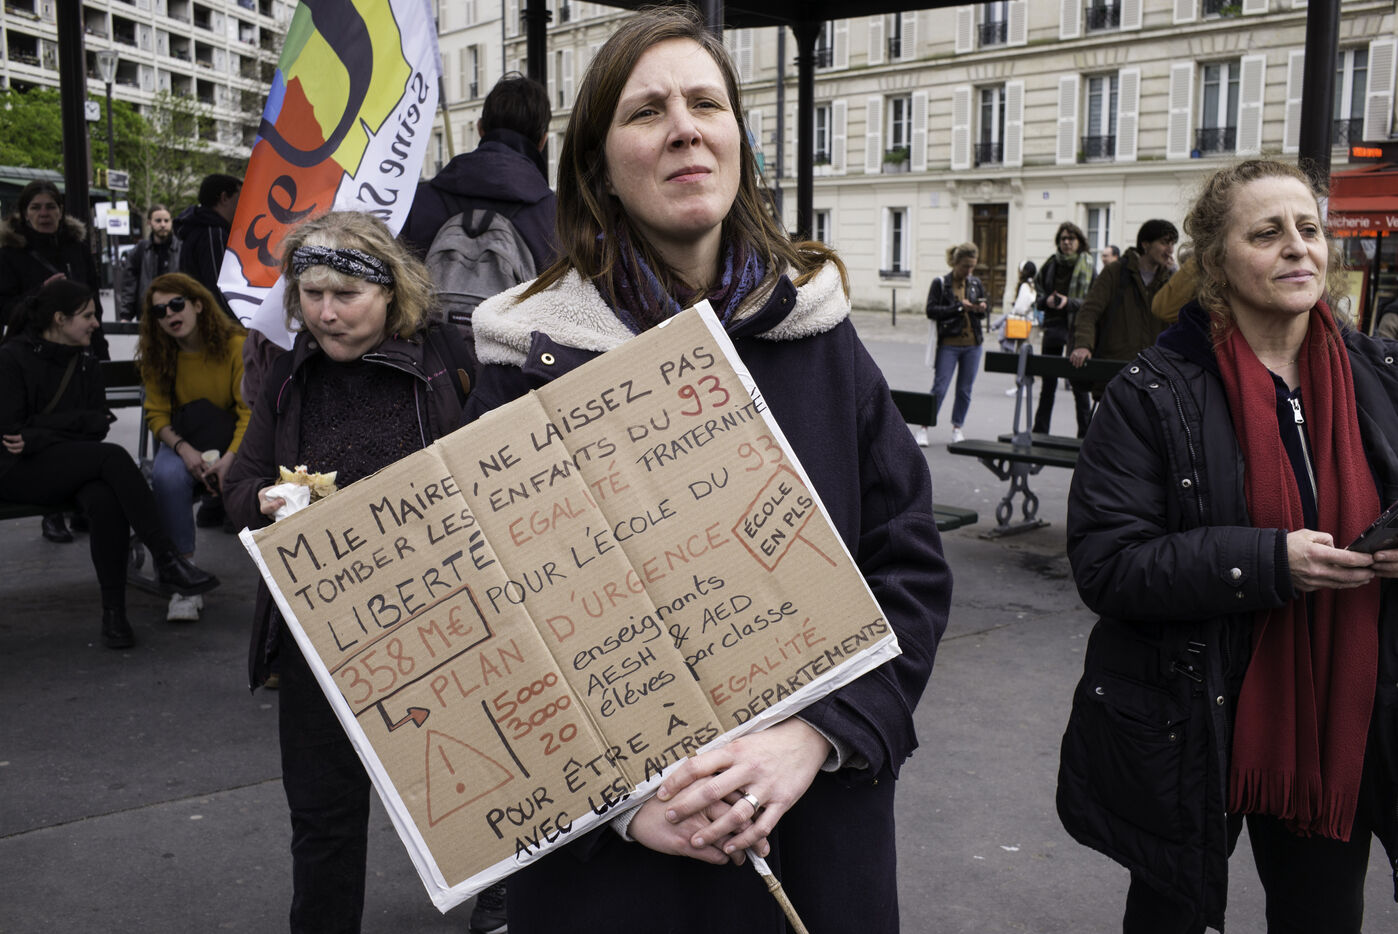 M. LE MAIRE, NE LAISSEZ PAS
TOMBER LES ENFANTS DU 93
LIBERTÉ EGALITÉ FRATERNITÉ
358 M€ POUR L'ÉCOLE DU 93
PLAN D'URGENCE
ÉCOLE
EN PLS
!
5000 enseignants
3000 AESH & AED
20 éléves par classe
POUR ÊTRE À EGALITÉ
AVEC LES AUTRES DÉPARTEMENTS
Seine S